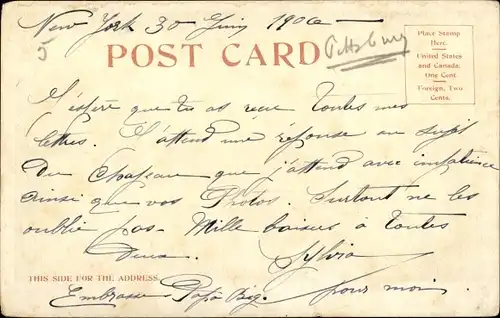 New York 30 Juin 1906
5
POST CARD
Pittsburg
Place Stamp
Here.
United States
and Canada,
One Cent.
Foreign, Two
Cents.
J'espère que tu as reçu Toutes mes
lettres. J'attend une réponse au sujet
Du Chapeau que j'attend avec impatience
ainsi que vos Photos. Surtout ne les
oublie pas. Mille baisers à Toutes
Deux. Sylvia
THIS SIDE FOR THE ADDRESS.
Embrasse Papa pour moi.